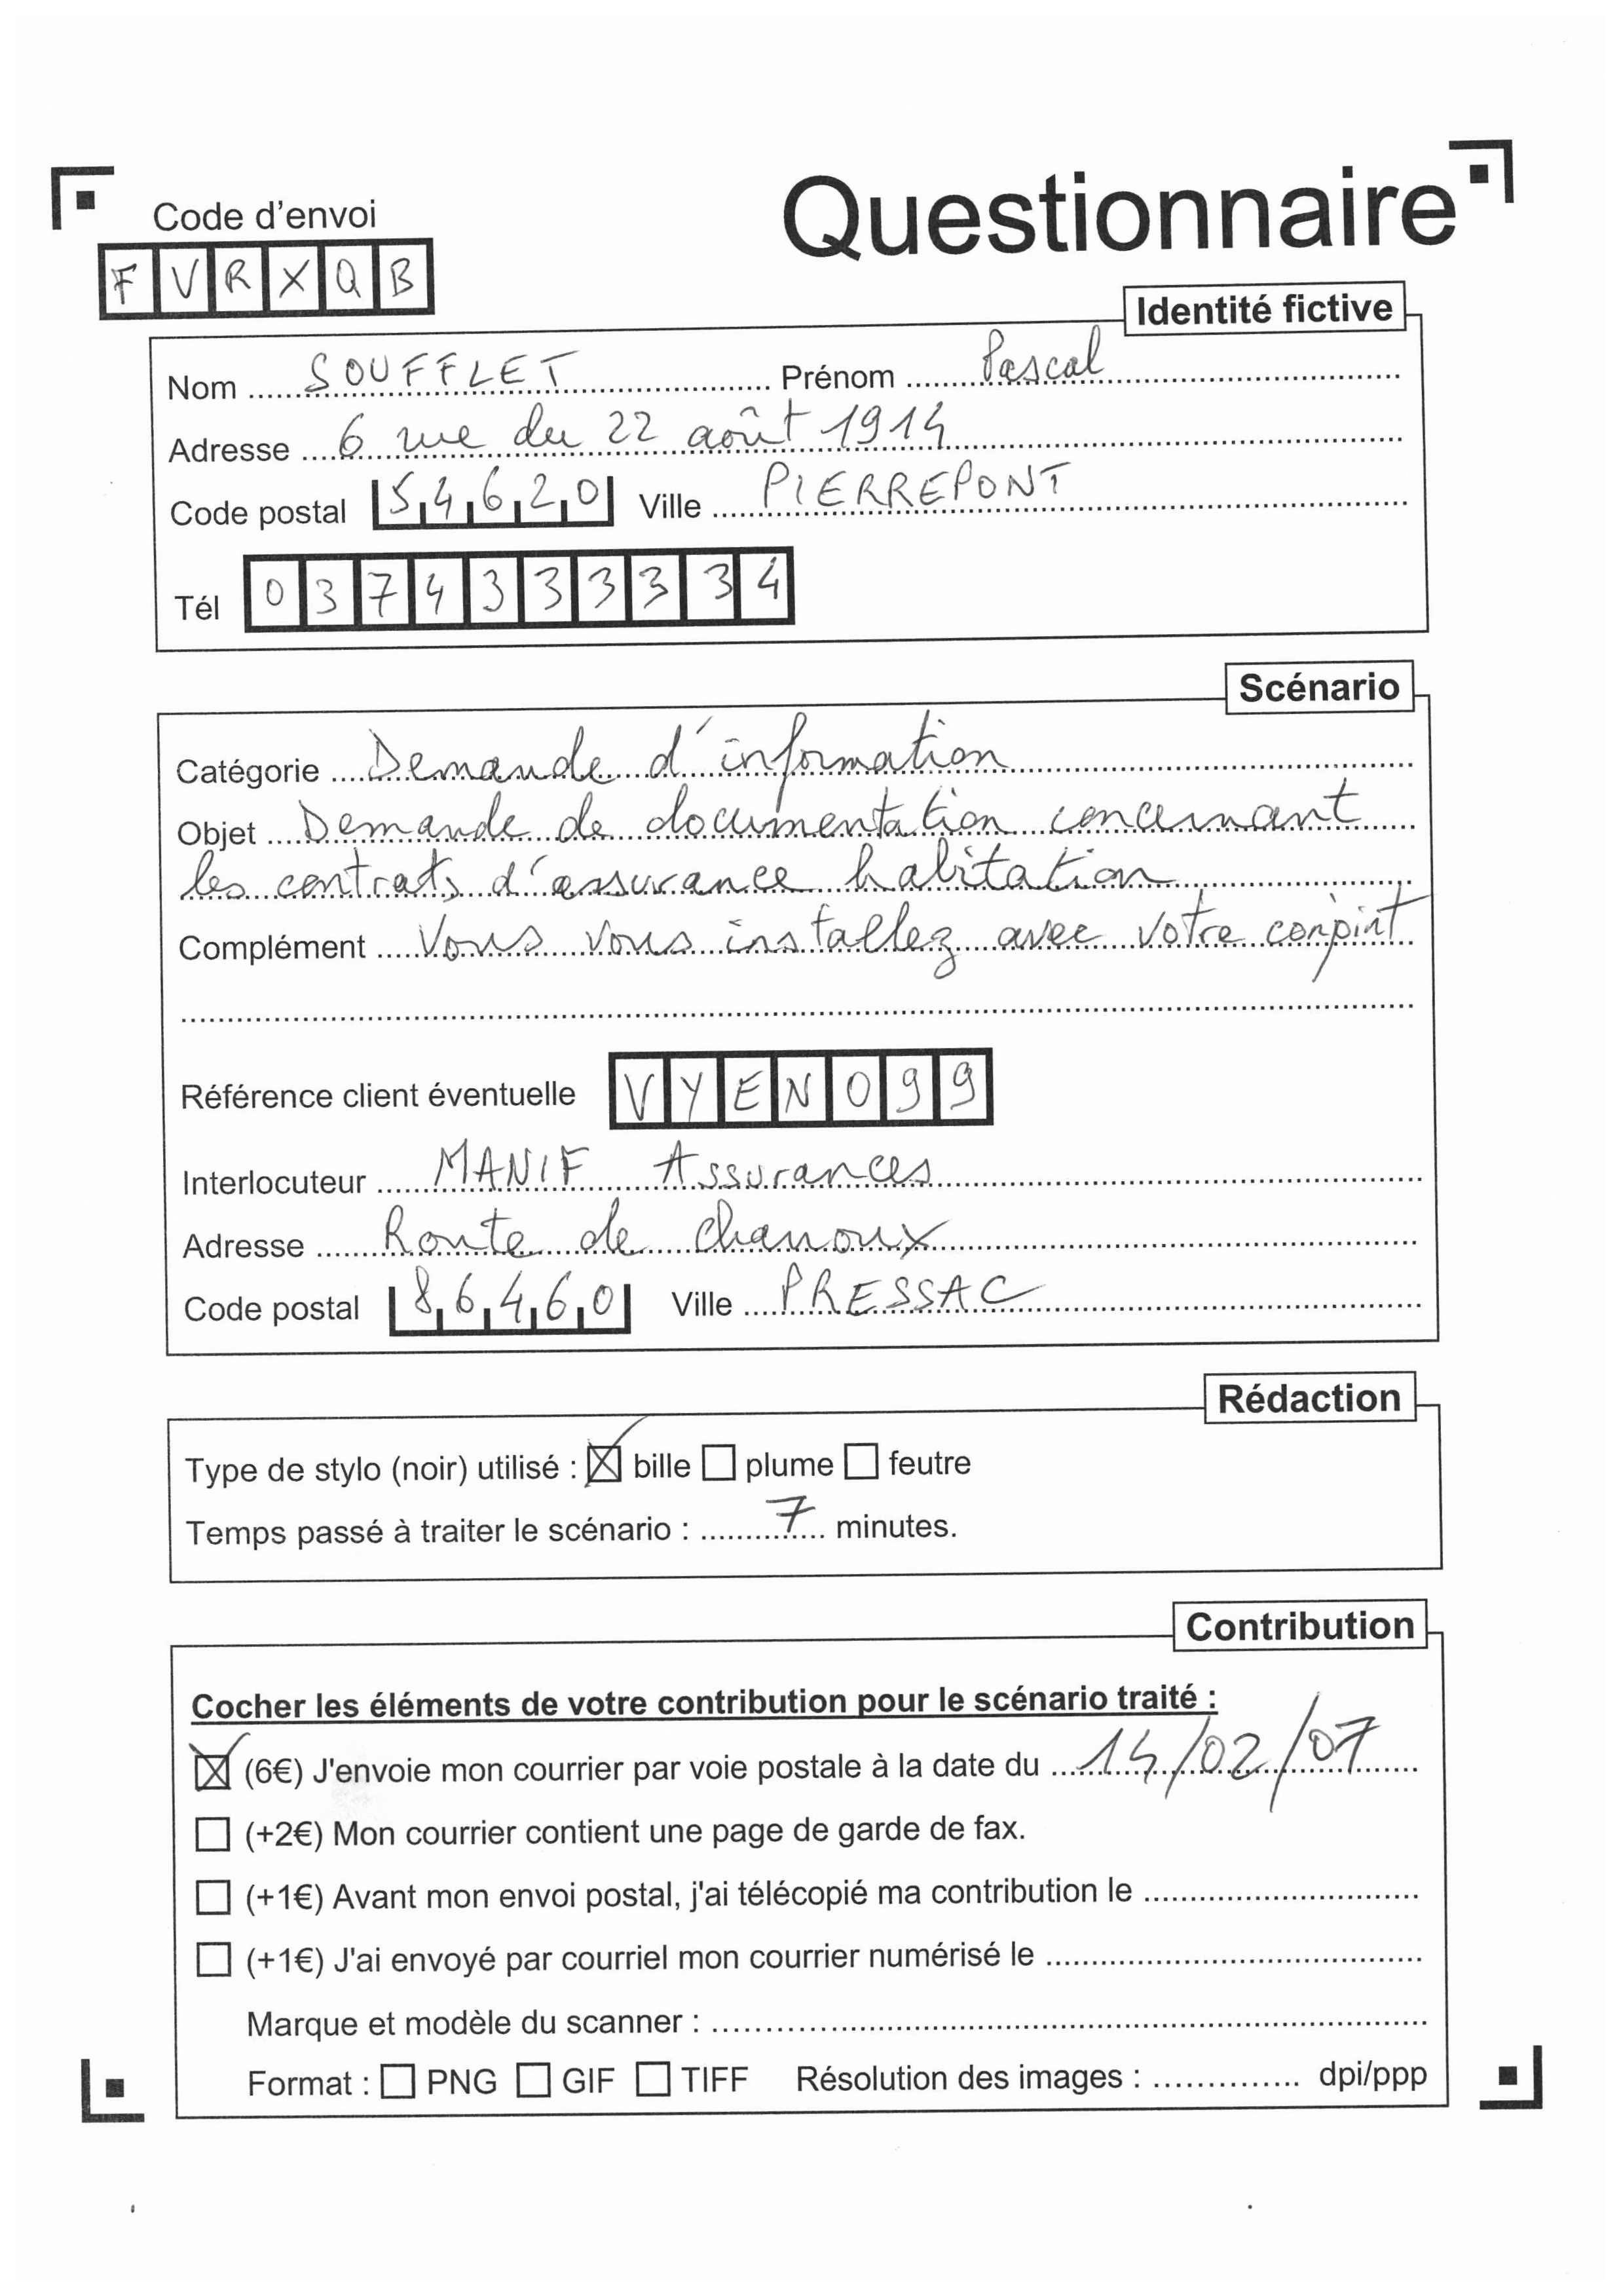 Questionnaire
Code d'envoi
F V R X Q B
Identité fictive
Nom SOUFFLET Prénom Pascal
Adresse 6 rue du 22 août 1914
Code postal 54620 Ville PIERREPONT
Tél 0374333334
Scénario
Catégorie Demande d'information
Objet Demande de documentation concernant
les contrats d'assurance habitation
Complément Vous vous installez avec votre conjoint
Référence client éventuelle VYEN099
Interlocuteur MANIF Assurances
Adresse Route de chanoux
Code postal 86460 Ville PRESSAC
Rédaction
Type de stylo (noir) utilisé : ☒ bille ☐ plume ☐ feutre
Temps passé à traiter le scénario : 7 minutes.
Contribution
Cocher les éléments de votre contribution pour le scénario traité :
☒ (6€) J'envoie mon courrier par voie postale à la date du 14/02/07
☐ (+2€) Mon courrier contient une page de garde de fax.
☐ (+1€) Avant mon envoi postal, j'ai télécopié ma contribution le
☐ (+1€) J'ai envoyé par courriel mon courrier numérisé le
Marque et modèle du scanner :
Format : ☐ PNG ☐ GIF ☐ TIFF Résolution des images : dpi/ppp